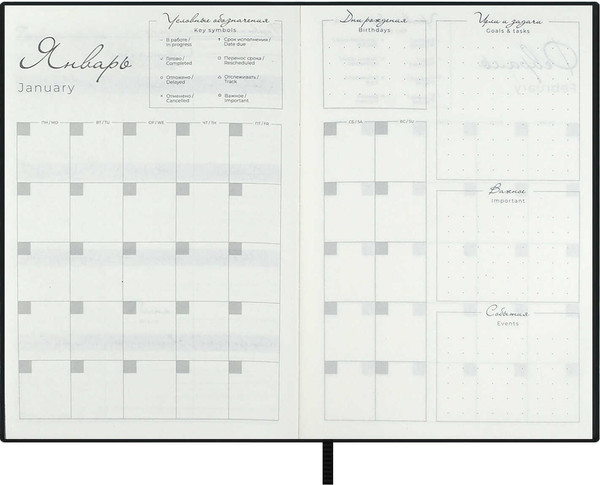 Январь
January
Условные обозначения
Key symbols
В работе /
in progress
Срок исполнения /
Date due
Готово /
Completed
Перенос срока /
Rescheduled
Отложено /
Delayed
Отслеживать /
Track
Отменено /
Cancelled
Важное /
Important
ПН / MO
ВТ / TU
СР / WE
ЧТ / TH
ПТ / FR
Дни рождения
Birthdays
Цели и задачи
Goals & tasks
СБ / SA
ВС / SU
Важное
Important
События
Events